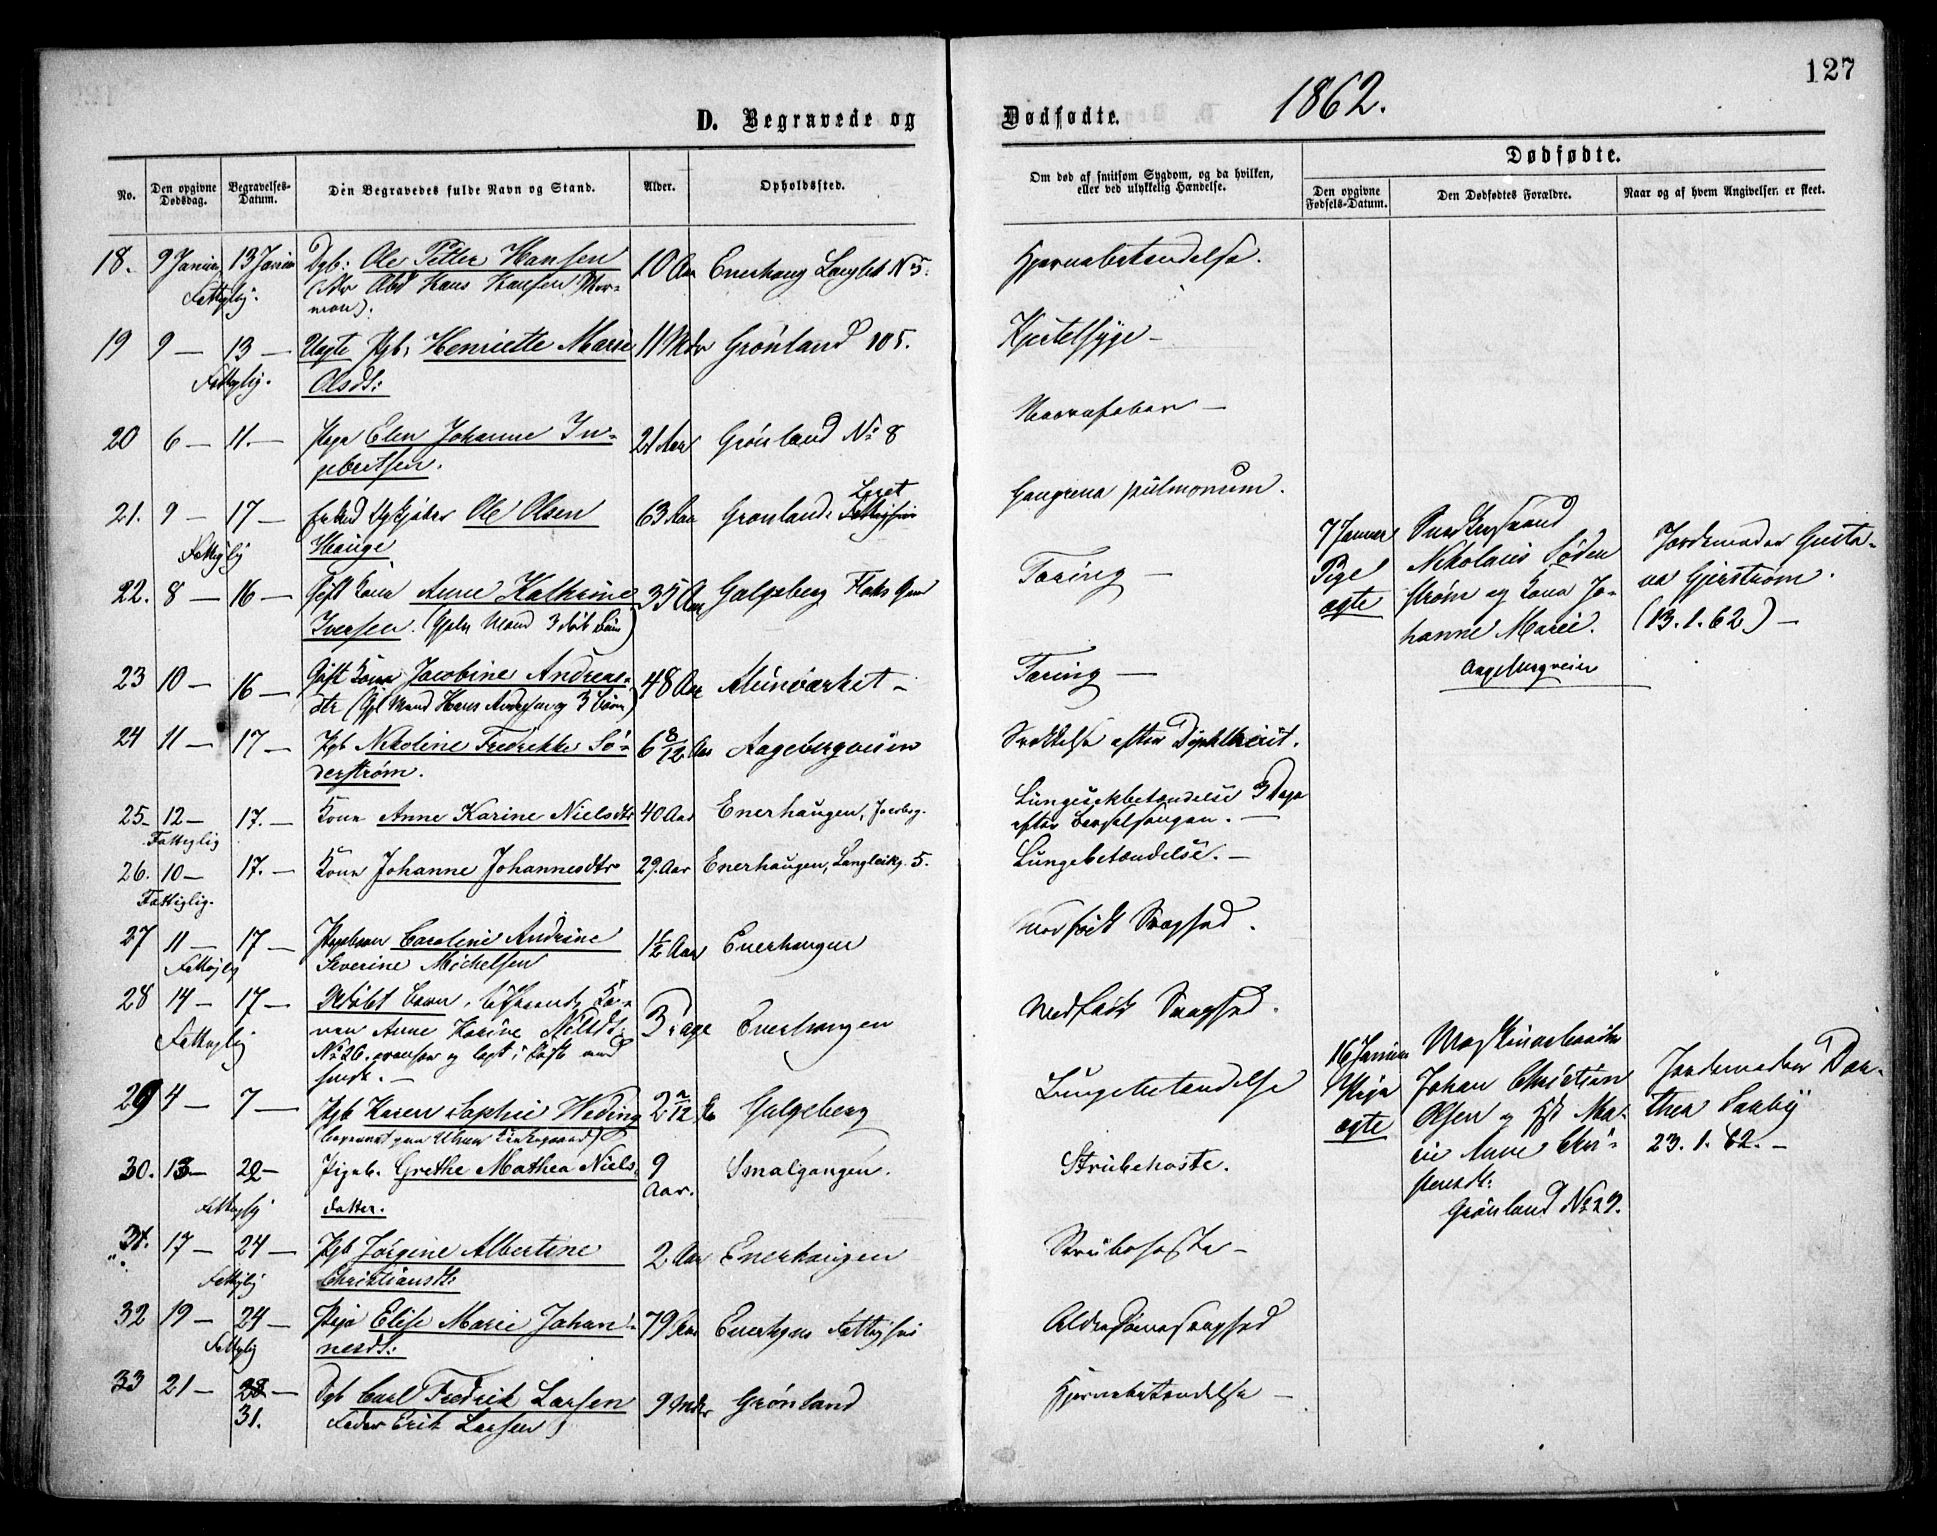 127
1862.
D. Begravede og Dødfødte.
No.
Den opgivne Dødsdag.
Begravelses-Datum.
Den Begravedes fulde Navn og Stand.
Alder.
Opholdssted.
Om død af smitsom Sygdom, og da hvilken, eller ved ulykkelig Hændelse.
Dødfødte.
Den opgivne Fødsels-Datum.
Den Dødfødtes Forældre.
Naar og af hvem Angivelsen er skeet.
18. 9 Januar 13 Januar Dgb: Ole Petter Hansen 10 Aar Enerhaug No 5. Hjernebetændelse.
Hans Hansen Mor-
mon).
19 9 — 13 — Uægte Pgb. Henriette Marie 11 Mdr Grønland 105. Kjertelsyge —
Olsdt:
20 6 — 11. — Pige Elen Johanne In- 21 Aar Grønland No 8 Nervefeber —
gebretsen.
21. 9 — 17 — Ole Olsen 63 Aar Grønland. Gangrena pulmonum.
Hauge
Fattiglig
22. 8 — 16 — Gift Kone Anne Kathrine 35 Aar Galgeberg Tæring —
Iversen. (Mand 3 Børn)
23 10 — 16 — Gift Kone Jacobine Andreas- 48 Aar Alunværket — Tæring —
dtr (Mand Hans 3 Børn)
24 11 — 17 — Pgb Nikoline Fredrikke Sö- 6 8/12 Aar Aagebergveien Svækkelse efter Diphtherit.
derstrøm.
25 — 12 — 17. — Kone Anne Karine Nielsdtr 40 Aar Enerhaugen, Lungesækbetændelse 3 Dage
Fattiglig efter Barselsengen. —
26. 10 — 17. — Kone Johanne Johannesdtr 29. Aar Enerhaugen, 5. Lungebetændelse. —
Fattiglig.
27 11 — 17 — Pigebarn Caroline Andrine 1½ Aar Enerhaugen Medfødt Svaghed.
Fattiglig Severine Michelsen
28 14 — 17 — Udøbt Barn, 3 Dage Enerhaugen Medfødt Svaghed.
Fattiglig Anne Karine Nilsdt:
No 26. og lagt i Kiste med
29 4 — 7 — Pgb Karen Sophie Galgeberg Lungebetændelse
30. 13 — 20 — Pigeb. Grethe Mathea Niels- 9 Aar. Smalgangen. Strubehoste.
Fattiglig datter.
31. 17 — 24 — Pgb Jørgine Albertine 2 Aar Enerhaugen Strubehoste —
Fattiglig Christiansdt:
32 19 — 24 — Pige Elise Marie Johan- 79 Aar Enerhgns Fattighus Alderdomssvaghed
Fattiglig nesdt:
33 21 — 28 — Dgb Carl Fredrik Larsen 9 Mdr Grønland Hjernebetændelse —
31. Fader Erik Larsen)
7 Januar
Pige
ægte
Snedkersvend
Nikolaus Söder
strøm og Kone Jo-
hanne Marie.
Aagebergveien
Jordemoder Gusta-
va Gjerstrøm.
(13.1.62) —
16 Januar
Pige
ægte
Maskinarbeider
Johan Christian
Olsen og Hst Ma-
rie Anne Chri-
stensdt:
Grønland No 29.
Jordemoder Dor-
thea Saxby
23. 1. 62. —